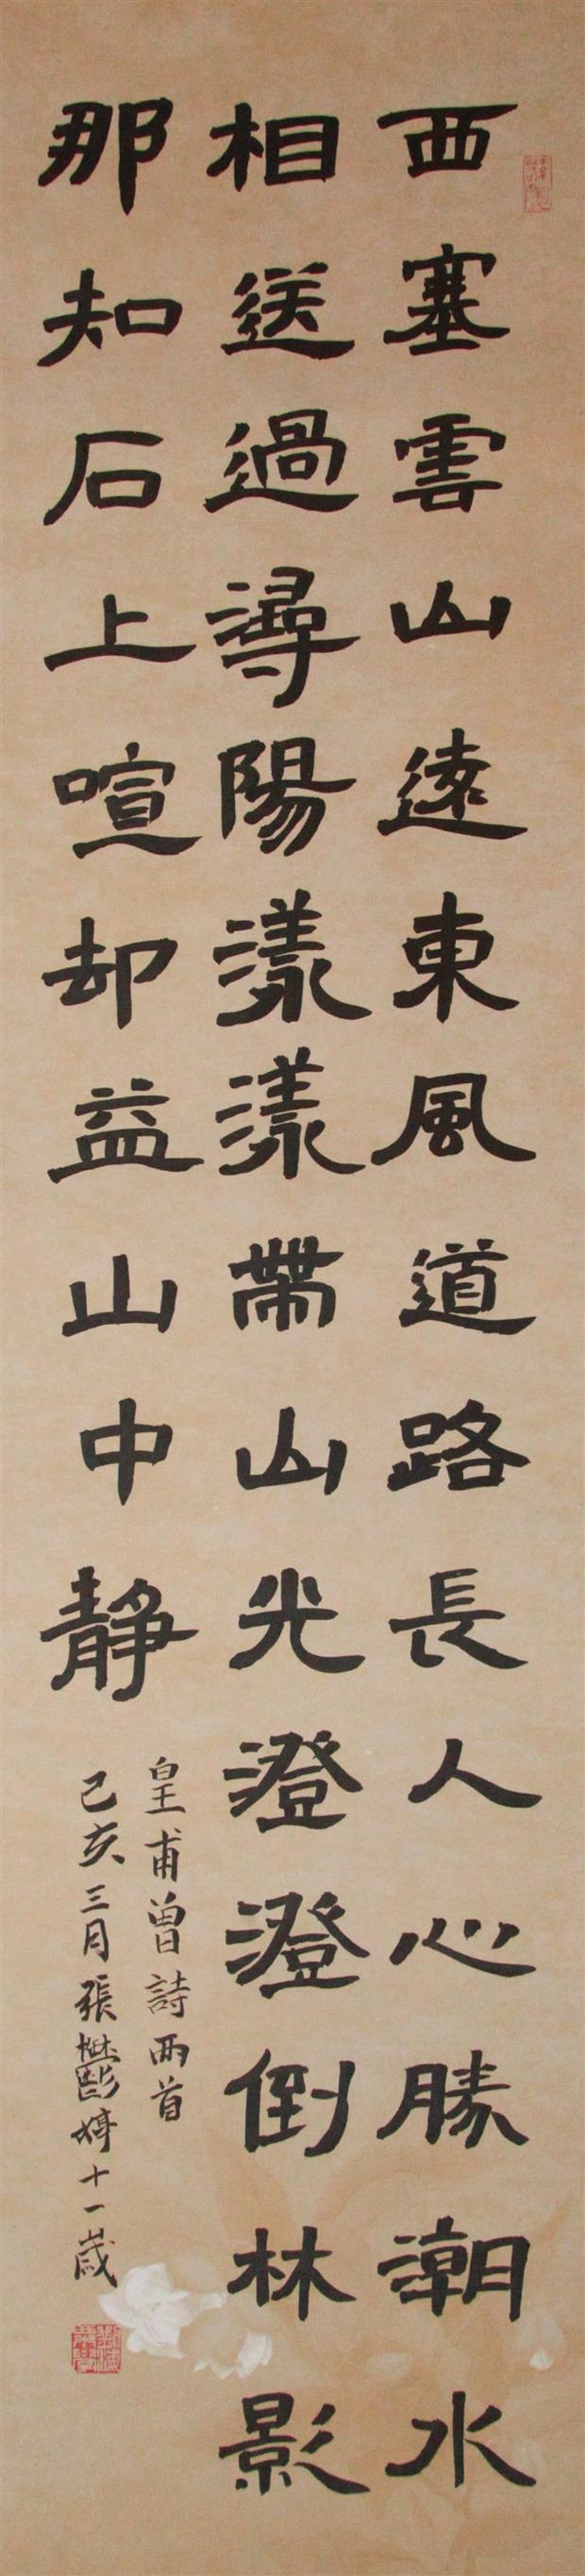 西塞雲山遠東風道路長人心勝潮水
相送過潯陽漾漾帶山光澄澄倒林影
那知石上喧却益山中靜
皇甫曾詩兩首
己亥三月張鬱婷十一歲